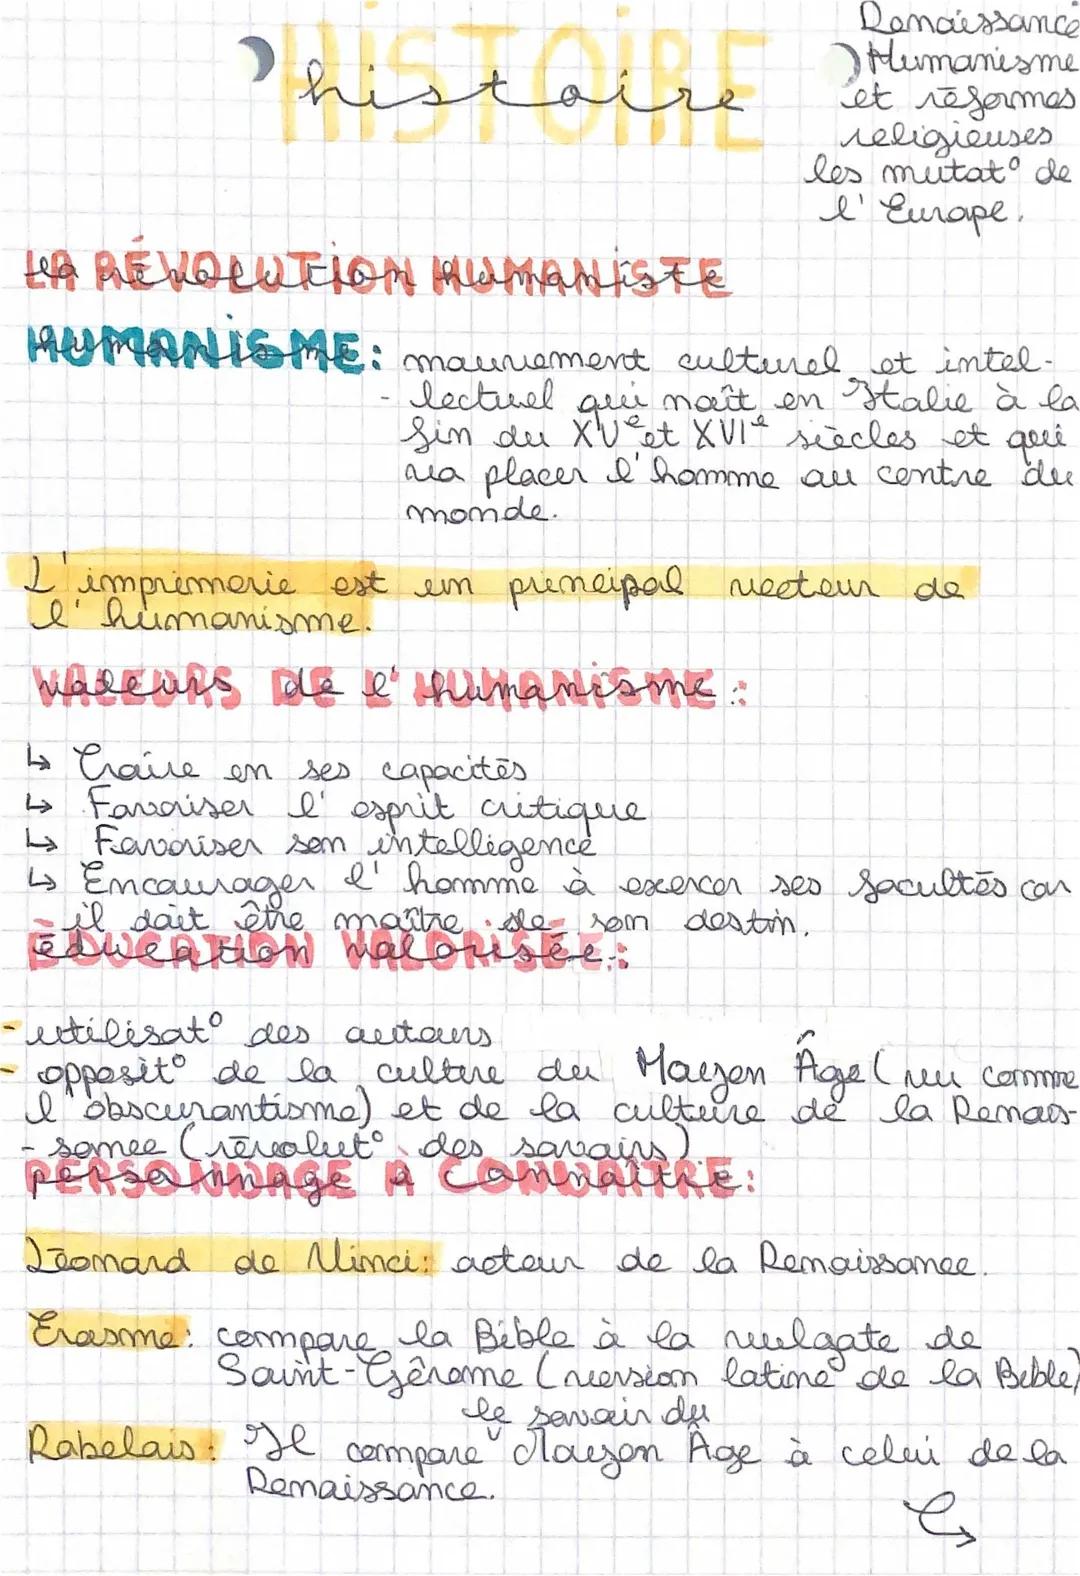 HISTOIRE
histoire
Renaissance
Humanisme
et réformes
religieuses
les mutat° de
l'Europe.
LA RÉVOLUTION HUMANISTE
HUMANISME: mouvement culturel et intel-
- lectuel qui naît en Italie à la
fin du XVe et XVIe siècles et qui
va placer l'homme au centre du
monde.
L'imprimerie est un principal vecteur de
l'humanisme.
VALEURS DE L'HUMANISME :
↳ Croire en ses capacités
↳ Favoriser l'esprit critique
↳ Favoriser son intelligence
↳ Encourager l'homme à exercer ses facultés car
il doit être maître de son destin.
ÉDUCATION VALORISÉE :
- utilisat° des auteurs
- opposit° de la culture du Moyen Âge (vu comme
l'obscurantisme) et de la culture de la Renais-
- sance (révolut° des savoirs)
PERSONNAGE À CONNAÎTRE :
Léonard de Vinci: acteur de la Renaissance.
Erasme: compare la Bible à la vulgate de
Saint-Gérome (version latine de la Bible)
le savoir du
Rabelais: Il compare Moyen Âge à celui de la
Renaissance.